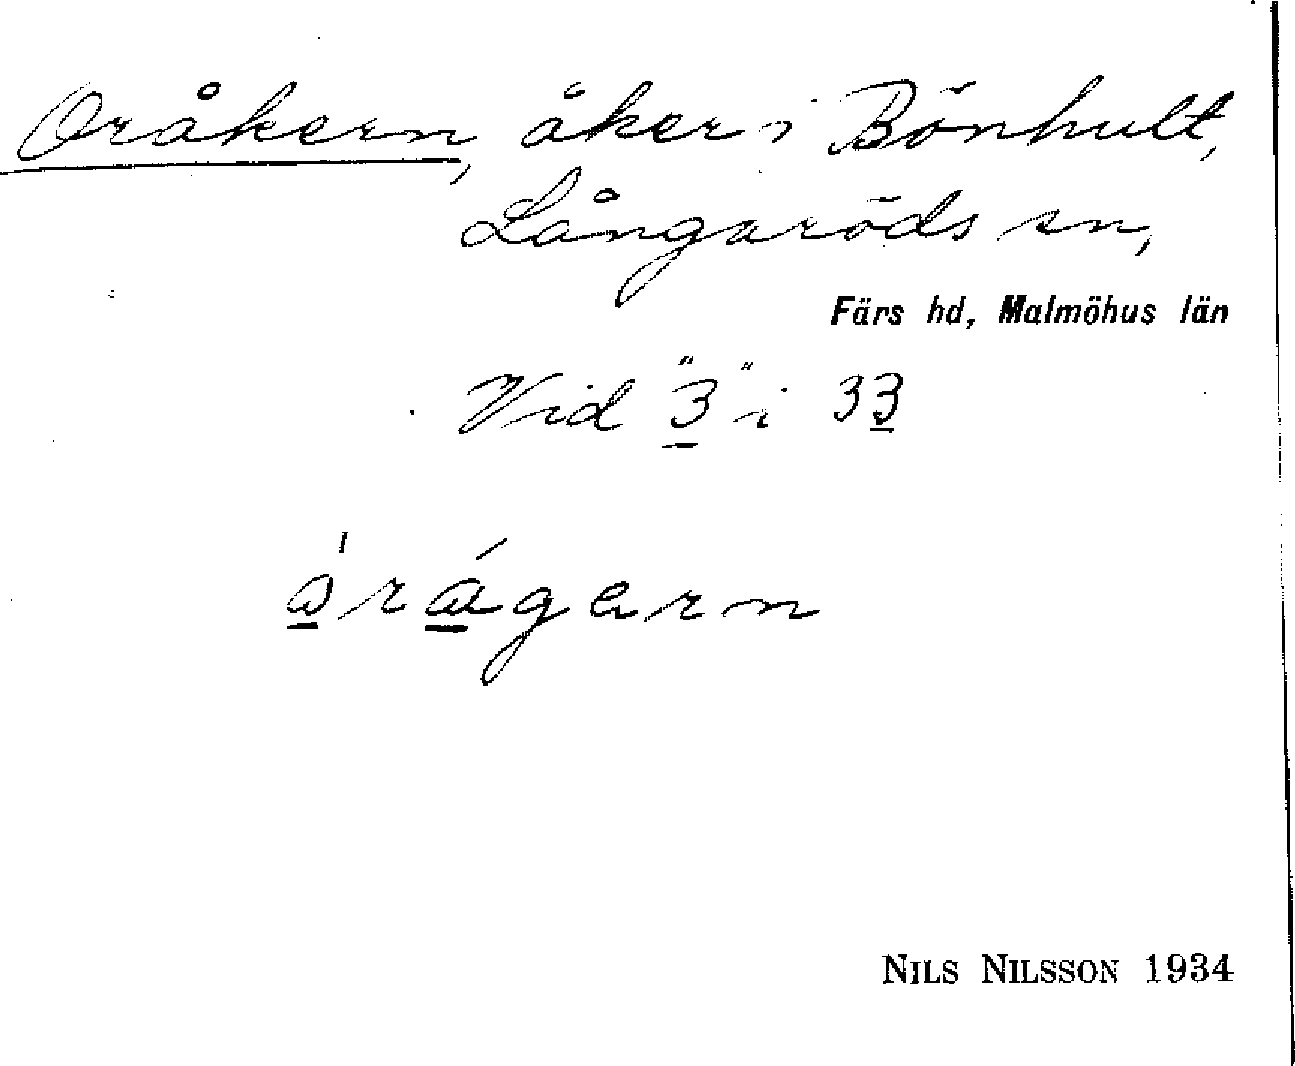 Oråkern, åker i Bönhult,
Långaröds sn,
Färs hd, Malmöhus län
Vid "3" i 33
årågern
NILS NILSSON 1934